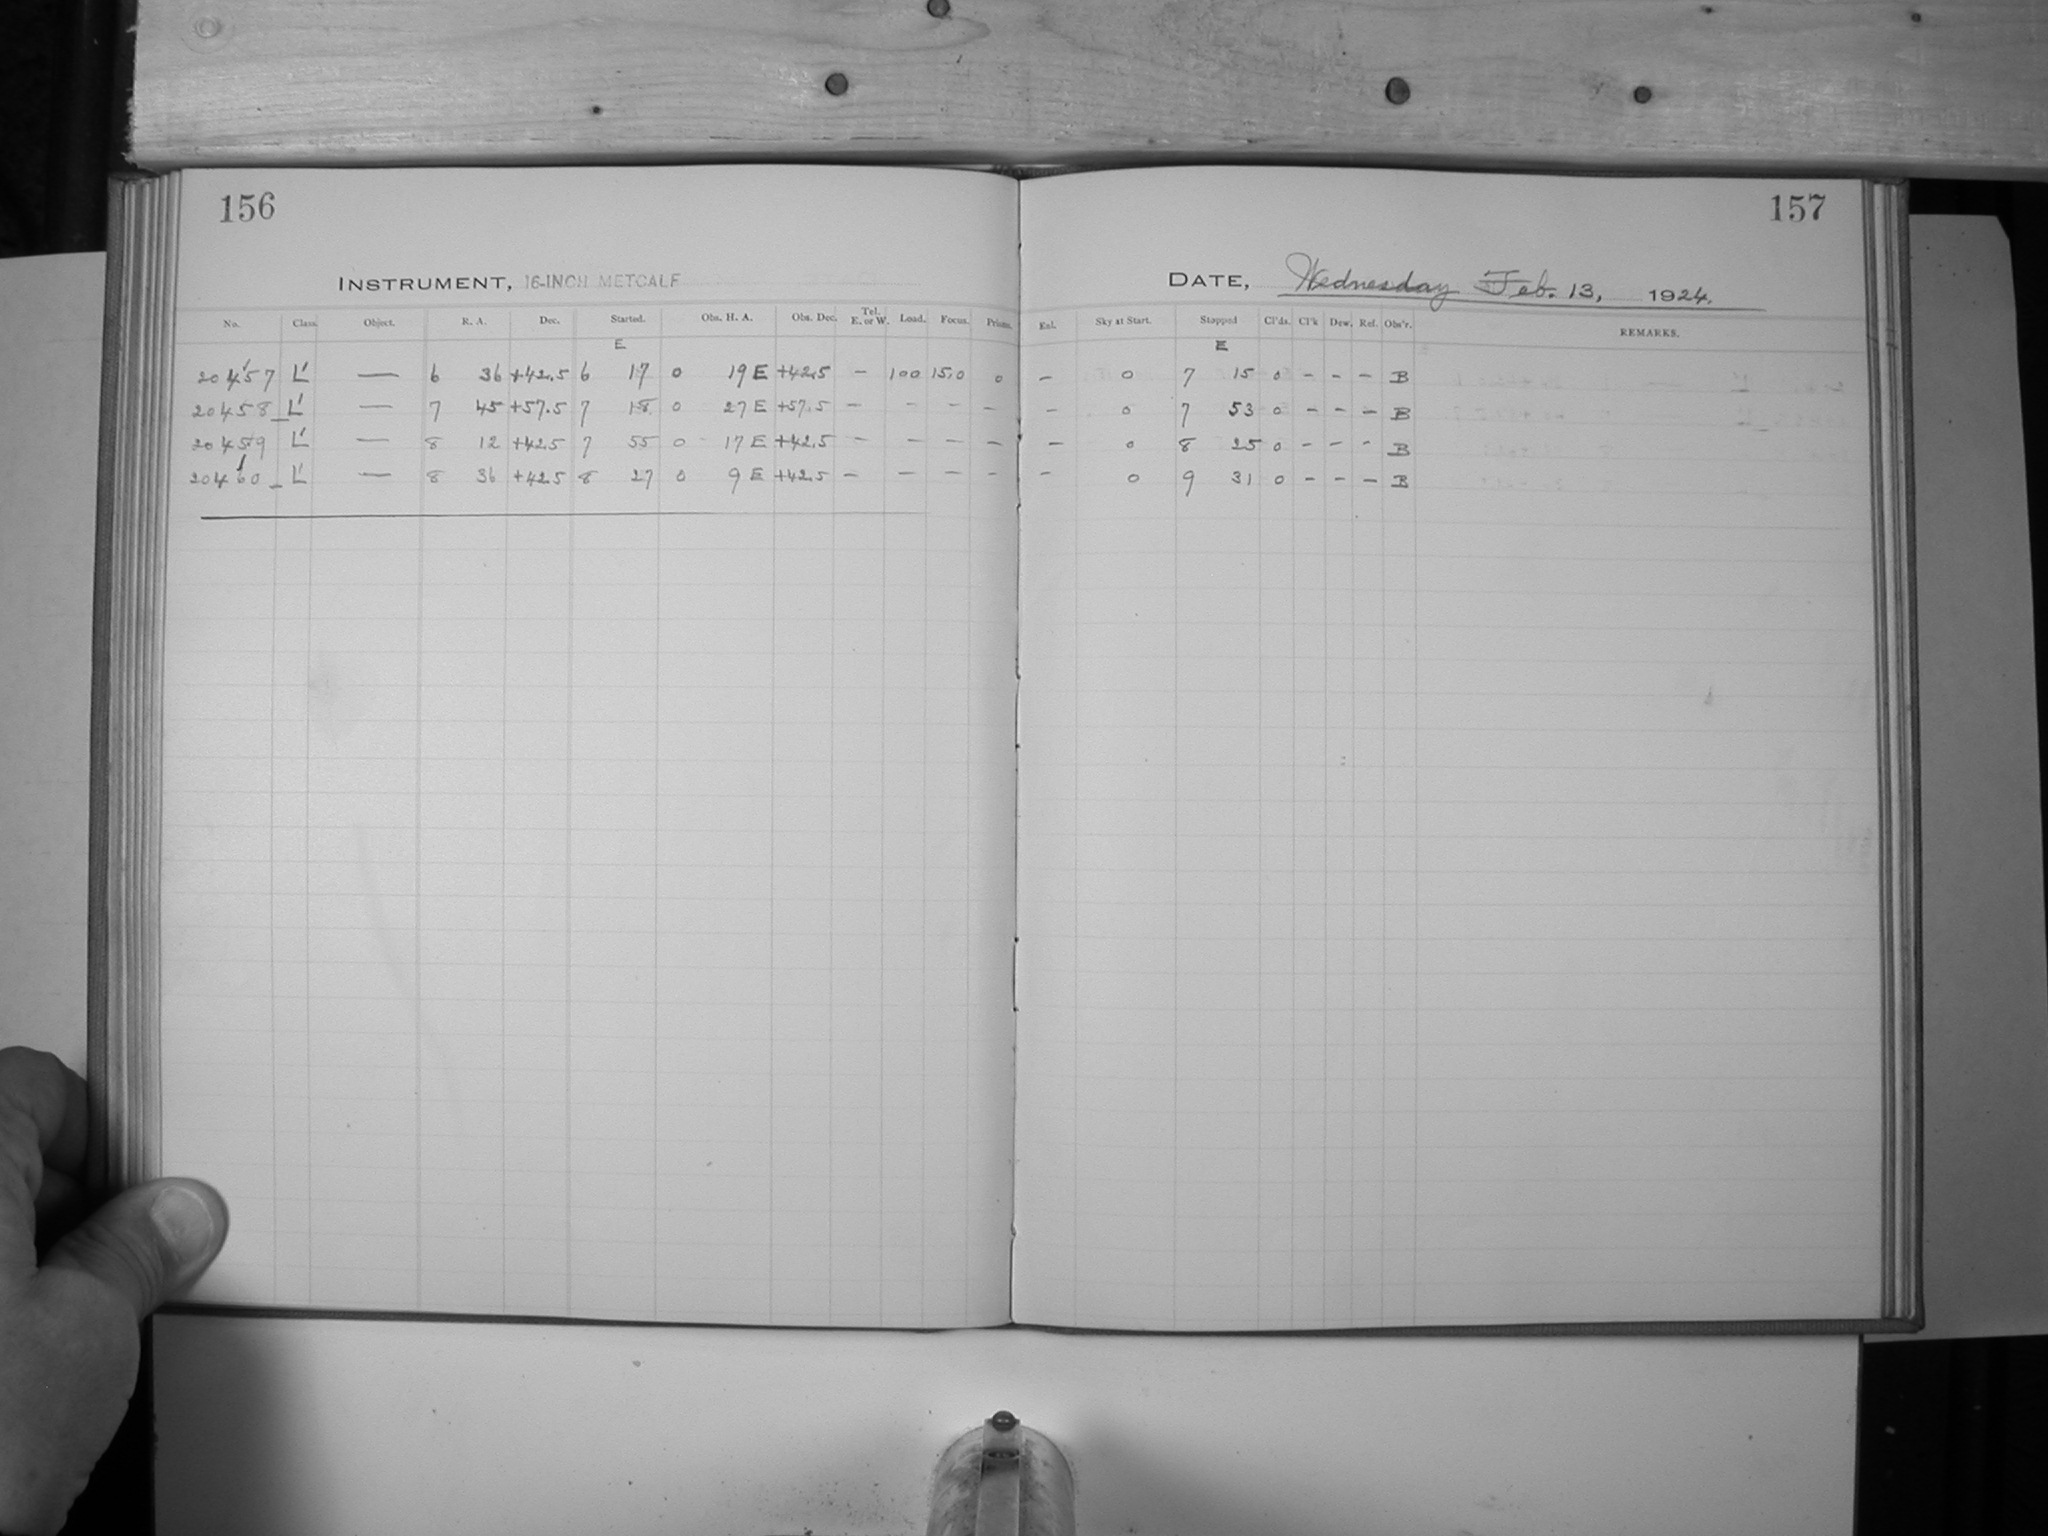 156
157
INSTRUMENT, 16-INCH METCALF
DATE, Wednesday Feb. 13, 1924.
No. Class. Object. R. A. Dec. Started. Obs. H. A. Obs. Dec. Tel. E. or W. Load. Focus. Prisms. Eal. Sky at Start. Stopped Cl'ds. Cl'k Dew. Ref. Obs'r. REMARKS.
E E
20457 L' — 6 36 +42.5 6 17 0 19 E +42.5 — 100 15.0 0 — 0 7 15 0 — — — B
20458 L' — 7 45 +57.5 7 18 0 27 E +57.5 — — — — — 0 7 53 0 — — — B
20459 L' — 8 12 +42.5 7 55 0 17 E +42.5 — — — — — 0 8 25 0 — — — B
20460 L' — 8 36 +42.5 8 27 0 9 E +42.5 — — — — — 0 9 31 0 — — — B